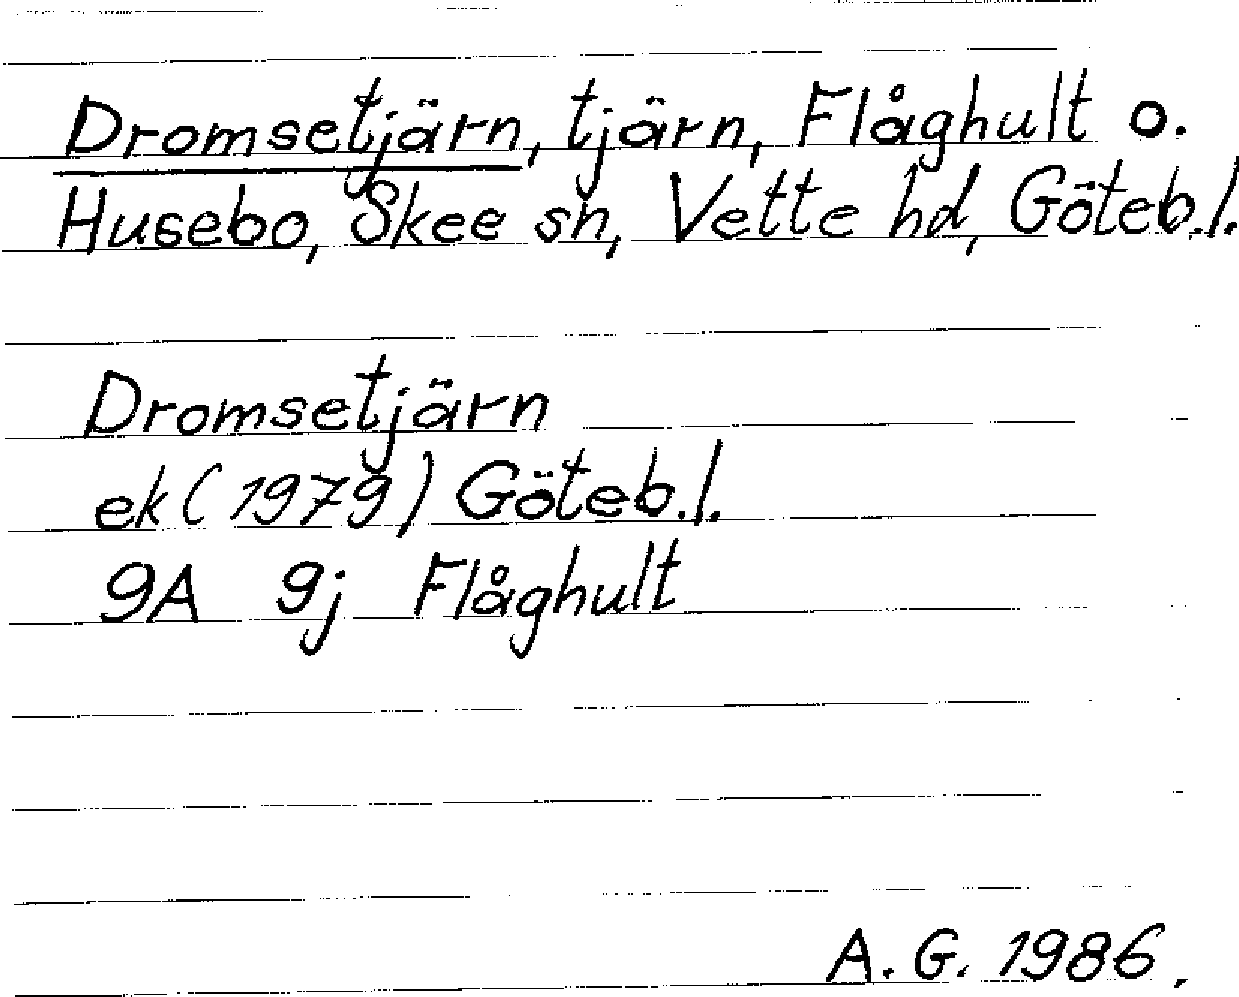 Dromsetjärn, tjärn, Flåghult o.
Husebo, Skee sn, Vette hd, Göteb.l.
Dromsetjärn
ek (1979) Göteb.l.
9A 9j Flåghult
A.G. 1986.